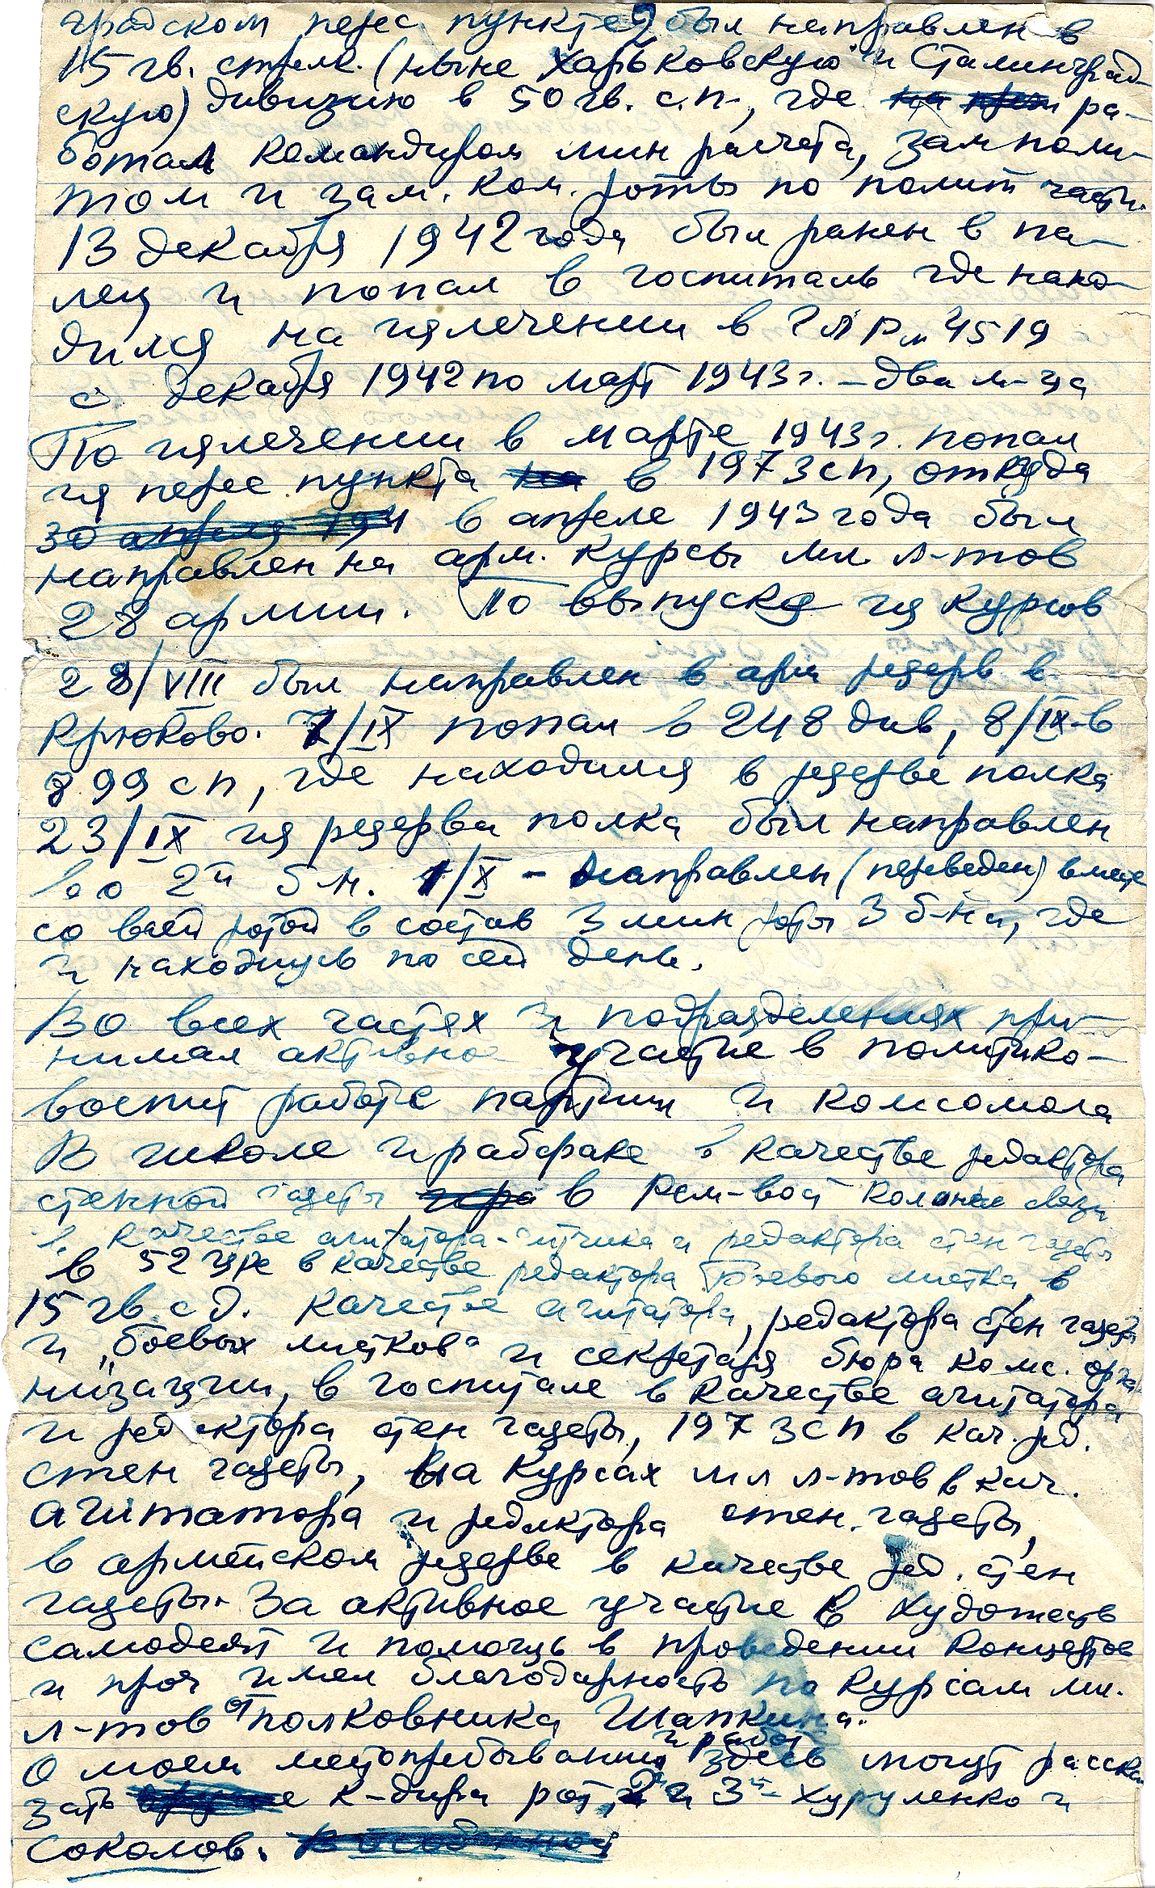 градском перес пункте, был направлен в
15 гв. стрелк. (ныне Харьковскую и Сталинград-
скую) дивизию в 50 гв. с.п., где ра-
ботал командиром мин расчета, замполи-
том и зам. ком. роты по полит части.
13 декабря 1942 года был ранен в па-
лец и попал в госпиталь где нахо-
дился на излечении в ГЛР № 4519
с декабря 1942 по март 1943 г. - два м-ца
По излечении в марте 1943 г. попал
из перес пункта в 197 ЗСП, откуда
30 апреля 194 в апреле 1943 года был
направлен на арм. курсы мл л-тов
28 армии. По выпуске из курсов
28/VIII был направлен в арм резерв в
Крюково. 7/IX попал в 248 див, 8/IX-в
899 сп, где находился в резерве полка
23/IX из резерва полка был направлен
во 2й б-н. 1/X - направлен (переведен) вместе
со всей ротой в состав 3 мин роты 3 б-на, где
и нахожусь по сей день.
Во всех частях и подразделениях при-
нимал активное участие в политико-
воспит работе партии и комсомола
В школе и рабфаке в качестве редактора
стенной газеты в Рем-вост колонне связи
в качестве агитатора-чтчика и редактора стен газеты
в 52 в качестве редактора Боевого листка, в
15 гв. с д. качестве агитатора, редактора стен газеты
и „боевых листков" и секретаря бюро комс. орга
низации, в госпитале в качестве агитатора
и редактора стен газеты, 197 ЗСП в кач. ред.
стен газеты, на курсах мл л-тов в кач.
агитатора и редактора стен. газеты,
в армейском резерве в качестве ред. стен
газеты. За активное участие в художеств
самодеят и помощь в проведении концертов
и проч имел благодарность по курсам мл.
л-тов от полковника Шапкина.
О моем местопребывании и работе здесь могут расска
зать к-диры рот, 2й и 3й - Хуруленко и
Соколов.